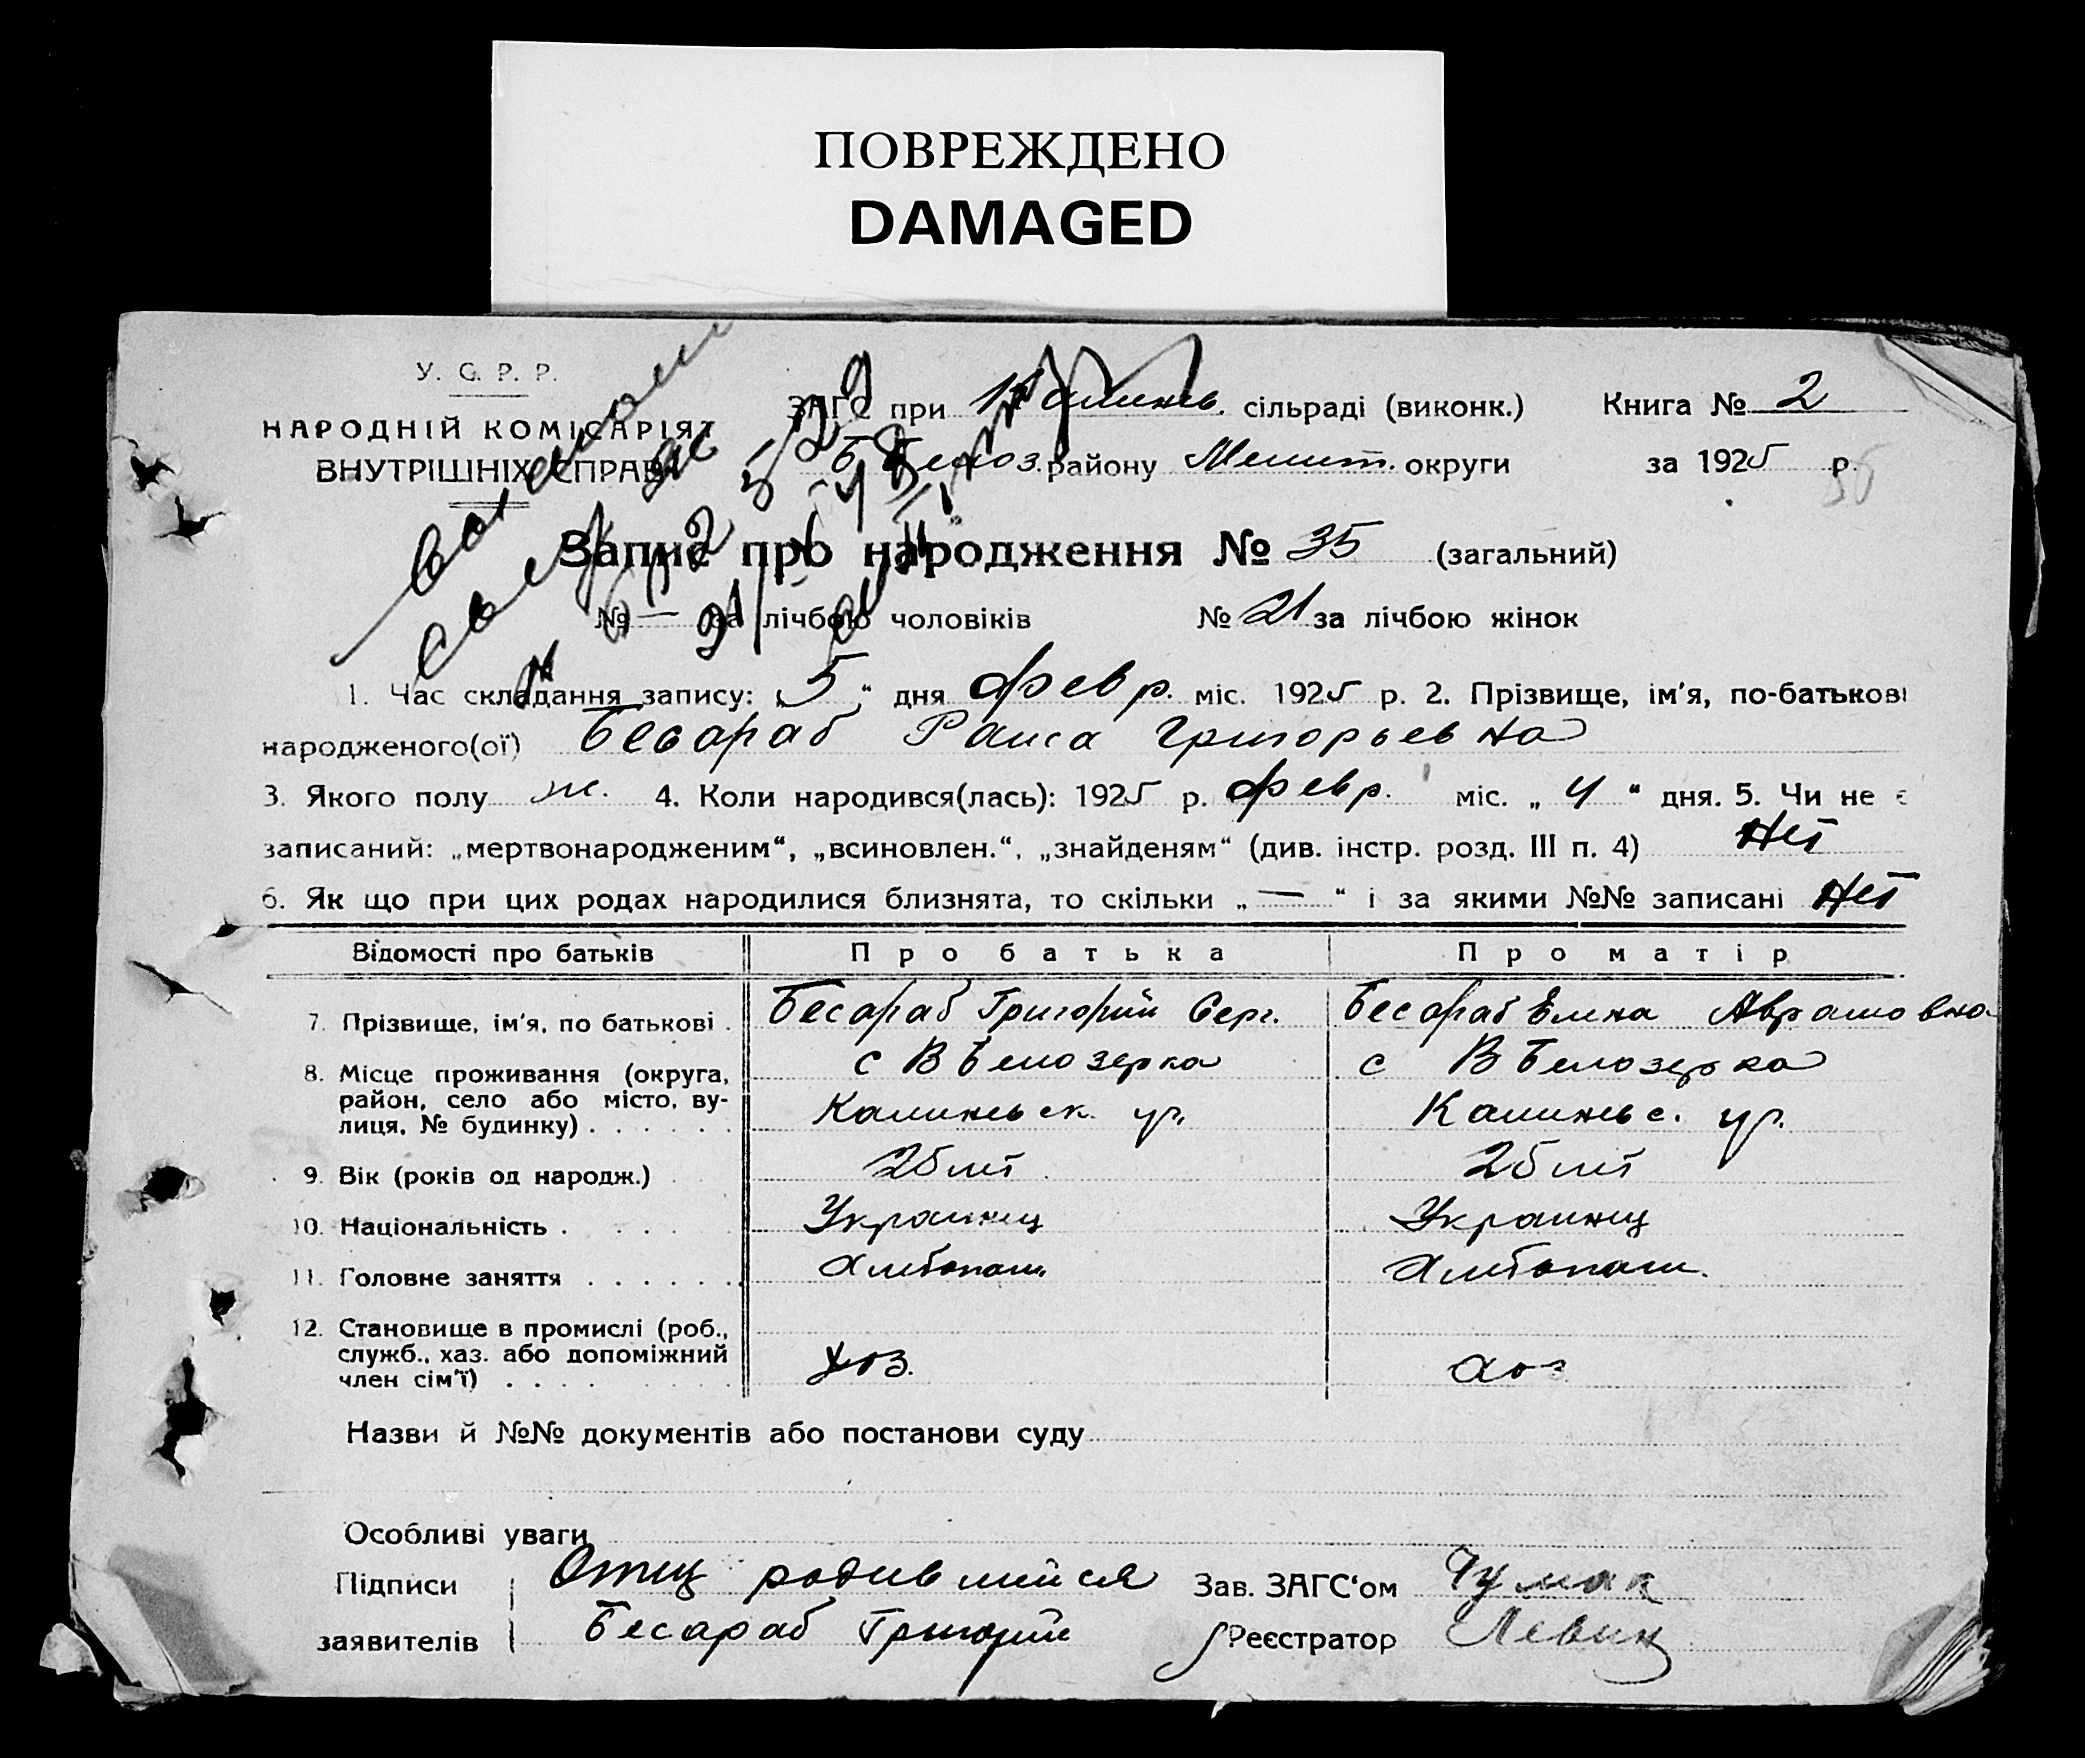 ПОВРЕЖДЕНО
DAMAGED
У. С. Р. Р.
НАРОДНІЙ КОМІСАРІЯТ
ВНУТРІШНІХ СПРАВ
ЗАГС при Калинов. сільраді (виконк.)
Б Белоз. району Мелит. округи
Книга № 2
за 1925 р.
Запис про народження № 35 (загальний)
№ — за лічбою чоловіків № 21 за лічбою жінок
1. Час складання запису: „5“ дня февр. міс. 1925 р. 2. Прізвище, ім'я, по-батькові
народженого(ої) Бесараб Раиса Григорьевна
3. Якого полу ж. 4. Коли народився(лась): 1925 р. февр. міс. „4“ дня. 5. Чи не є
записаний: „мертвонародженим“, „всиновлен.“, „знайденям“ (див. інстр. розд. III п. 4) Нет
6. Як що при цих родах народилися близнята, то скільки „—“ і за якими №№ записані Нет
Відомості про батьків Про батька Про матір
7. Прізвище, ім'я, по батькові . Бесараб Григорий Серг. Бесараб Елена Аврамовна
8. Місце проживання (округа, район, село або місто, вулиця, № будинку) . . . . . .
с В Белозерка с В Белозерка
Калиневск. ур. Калиневс. ур.
9. Вік (років од народж.) 25 лет 25 лет
10. Національність . . . . Украинец Украинец
11. Головне заняття . . . . . . Хлебопаш. Хлебопаш.
12. Становище в промислі (роб., служб., хаз. або допоміжний член сім'ї) . . . .
хоз. хоз
Назви й №№ документів або постанови суду
Особливі уваги
Підписи Отец родившийся Зав. ЗАГС'ом Чумак
заявителів Бесараб Григорий Реєстратор Левин